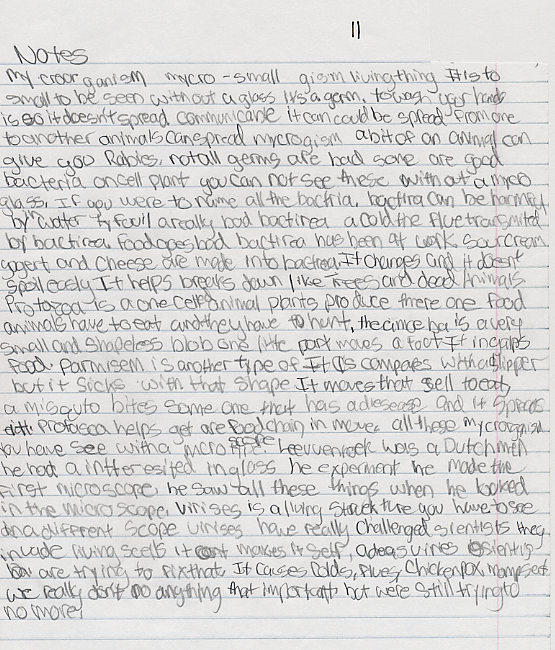 11
Notes
My croorganism mycro-small gism livingthing It is to
small to be seen without a glass Its a germ, to wash your hands
is so it doesn't spread, communicable it can could be spread From one
to another animals can spread mycrogism a bit of an animal can
give you Rabies, not all germs are bad some are good
bacteria oncell plant you can not see these without a mycro
glass, If you were to name all the bactria, bactira can be harmful
by water ty fovil a really bad bactirea a cold the flue transmited
by bactirea. food goes bad bactirea has been at work sour cream
yogert and cheese are made into bactrea It changes and it doesnt
spoil easly It helps breaks down like Trees and dead Animals
Protozoa Is a one cell animal plants produce there one food
animals have to eat and they have to hunt, the amee ba is a very
small and shapeless blob one litte part moves a foot It incalps
food. Parmisem is another type of It Is compares with a slipper
but it Sicks with that shape It moves that sell to eat,
a misquto bites some one that has a diesease and it Spreads
Protozoa helps get are food chain in moves all these mycrogism
you have see with a micro scope Leeuvenhoek was a Dutchmen
he had a intteresited in glass he experment he made the
First microscope, he saw all these things when he looked
in the microscope, virises is a living strukture you have to see
on a different scope virises have really challenged scientists they
invade living scells it cant makes it self,
are trying to fix that It Causes Colds, Flues, Chickenpox,
we really dont do anything that important but were still trying to
no more,